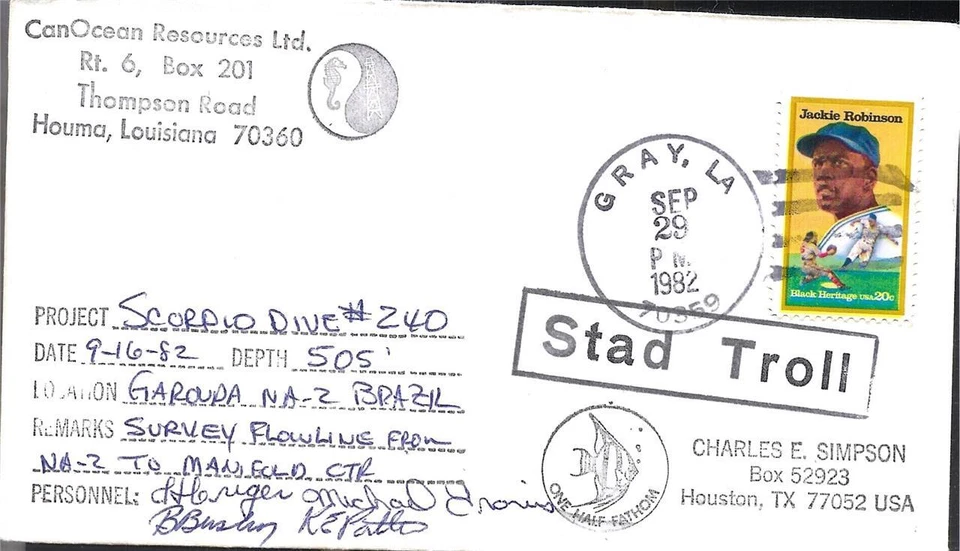 CanOcean Resources Ltd.
Rt. 6, Box 201
Thompson Road
Houma, Louisiana 70360
Jackie Robinson
Black Heritage USA 20c
GRAY, LA
SEP
29
PM
1982
70359
Stad Troll
PROJECT SCORPIO DIVE # 240
DATE 9-16-82 DEPTH 505'
LOCATION GAROUPA NA-2 BRAZIL
REMARKS SURVEY FLOWLINE FROM
NA-2 TO MANIFOLD CTR
PERSONNEL: Michael
ONE-HALF FATHOM
CHARLES E. SIMPSON
Box 52923
Houston, TX 77052 USA